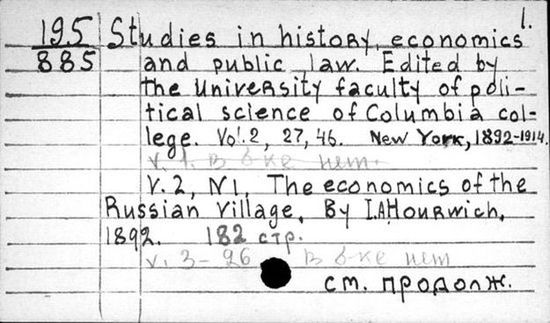 1.
195 Studies in history, economics
885 and public law. Edited by
the University faculty of poli-
tical science of Columbia col-
lege. Vol. 2, 27, 46. New York, 1892-1914.
v. 1. в б-ке нет.
V. 2, N1, The economics of the
Russian Village, By I.A.Hourwich,
1892. 182 стр.
v. 3-26 в б-ке нет
см. продолж.